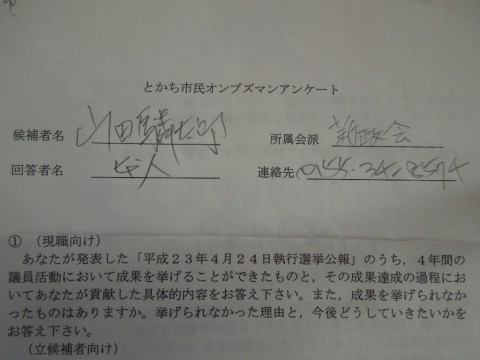 とかち市民オンブズマンアンケート
候補者名 山田 所属会派 新政会
回答者名 本人 連絡先 0155-34-
① （現職向け）
あなたが発表した「平成２３年４月２４日執行選挙公報」のうち，４年間の
議員活動において成果を挙げることができたものと，その成果達成の過程にお
いてあなたが貢献した具体的内容をお答え下さい。また，成果を挙げられなか
ったものはありますか。挙げられなかった理由と，今後どうしていきたいかを
お答え下さい。
（立候補者向け）